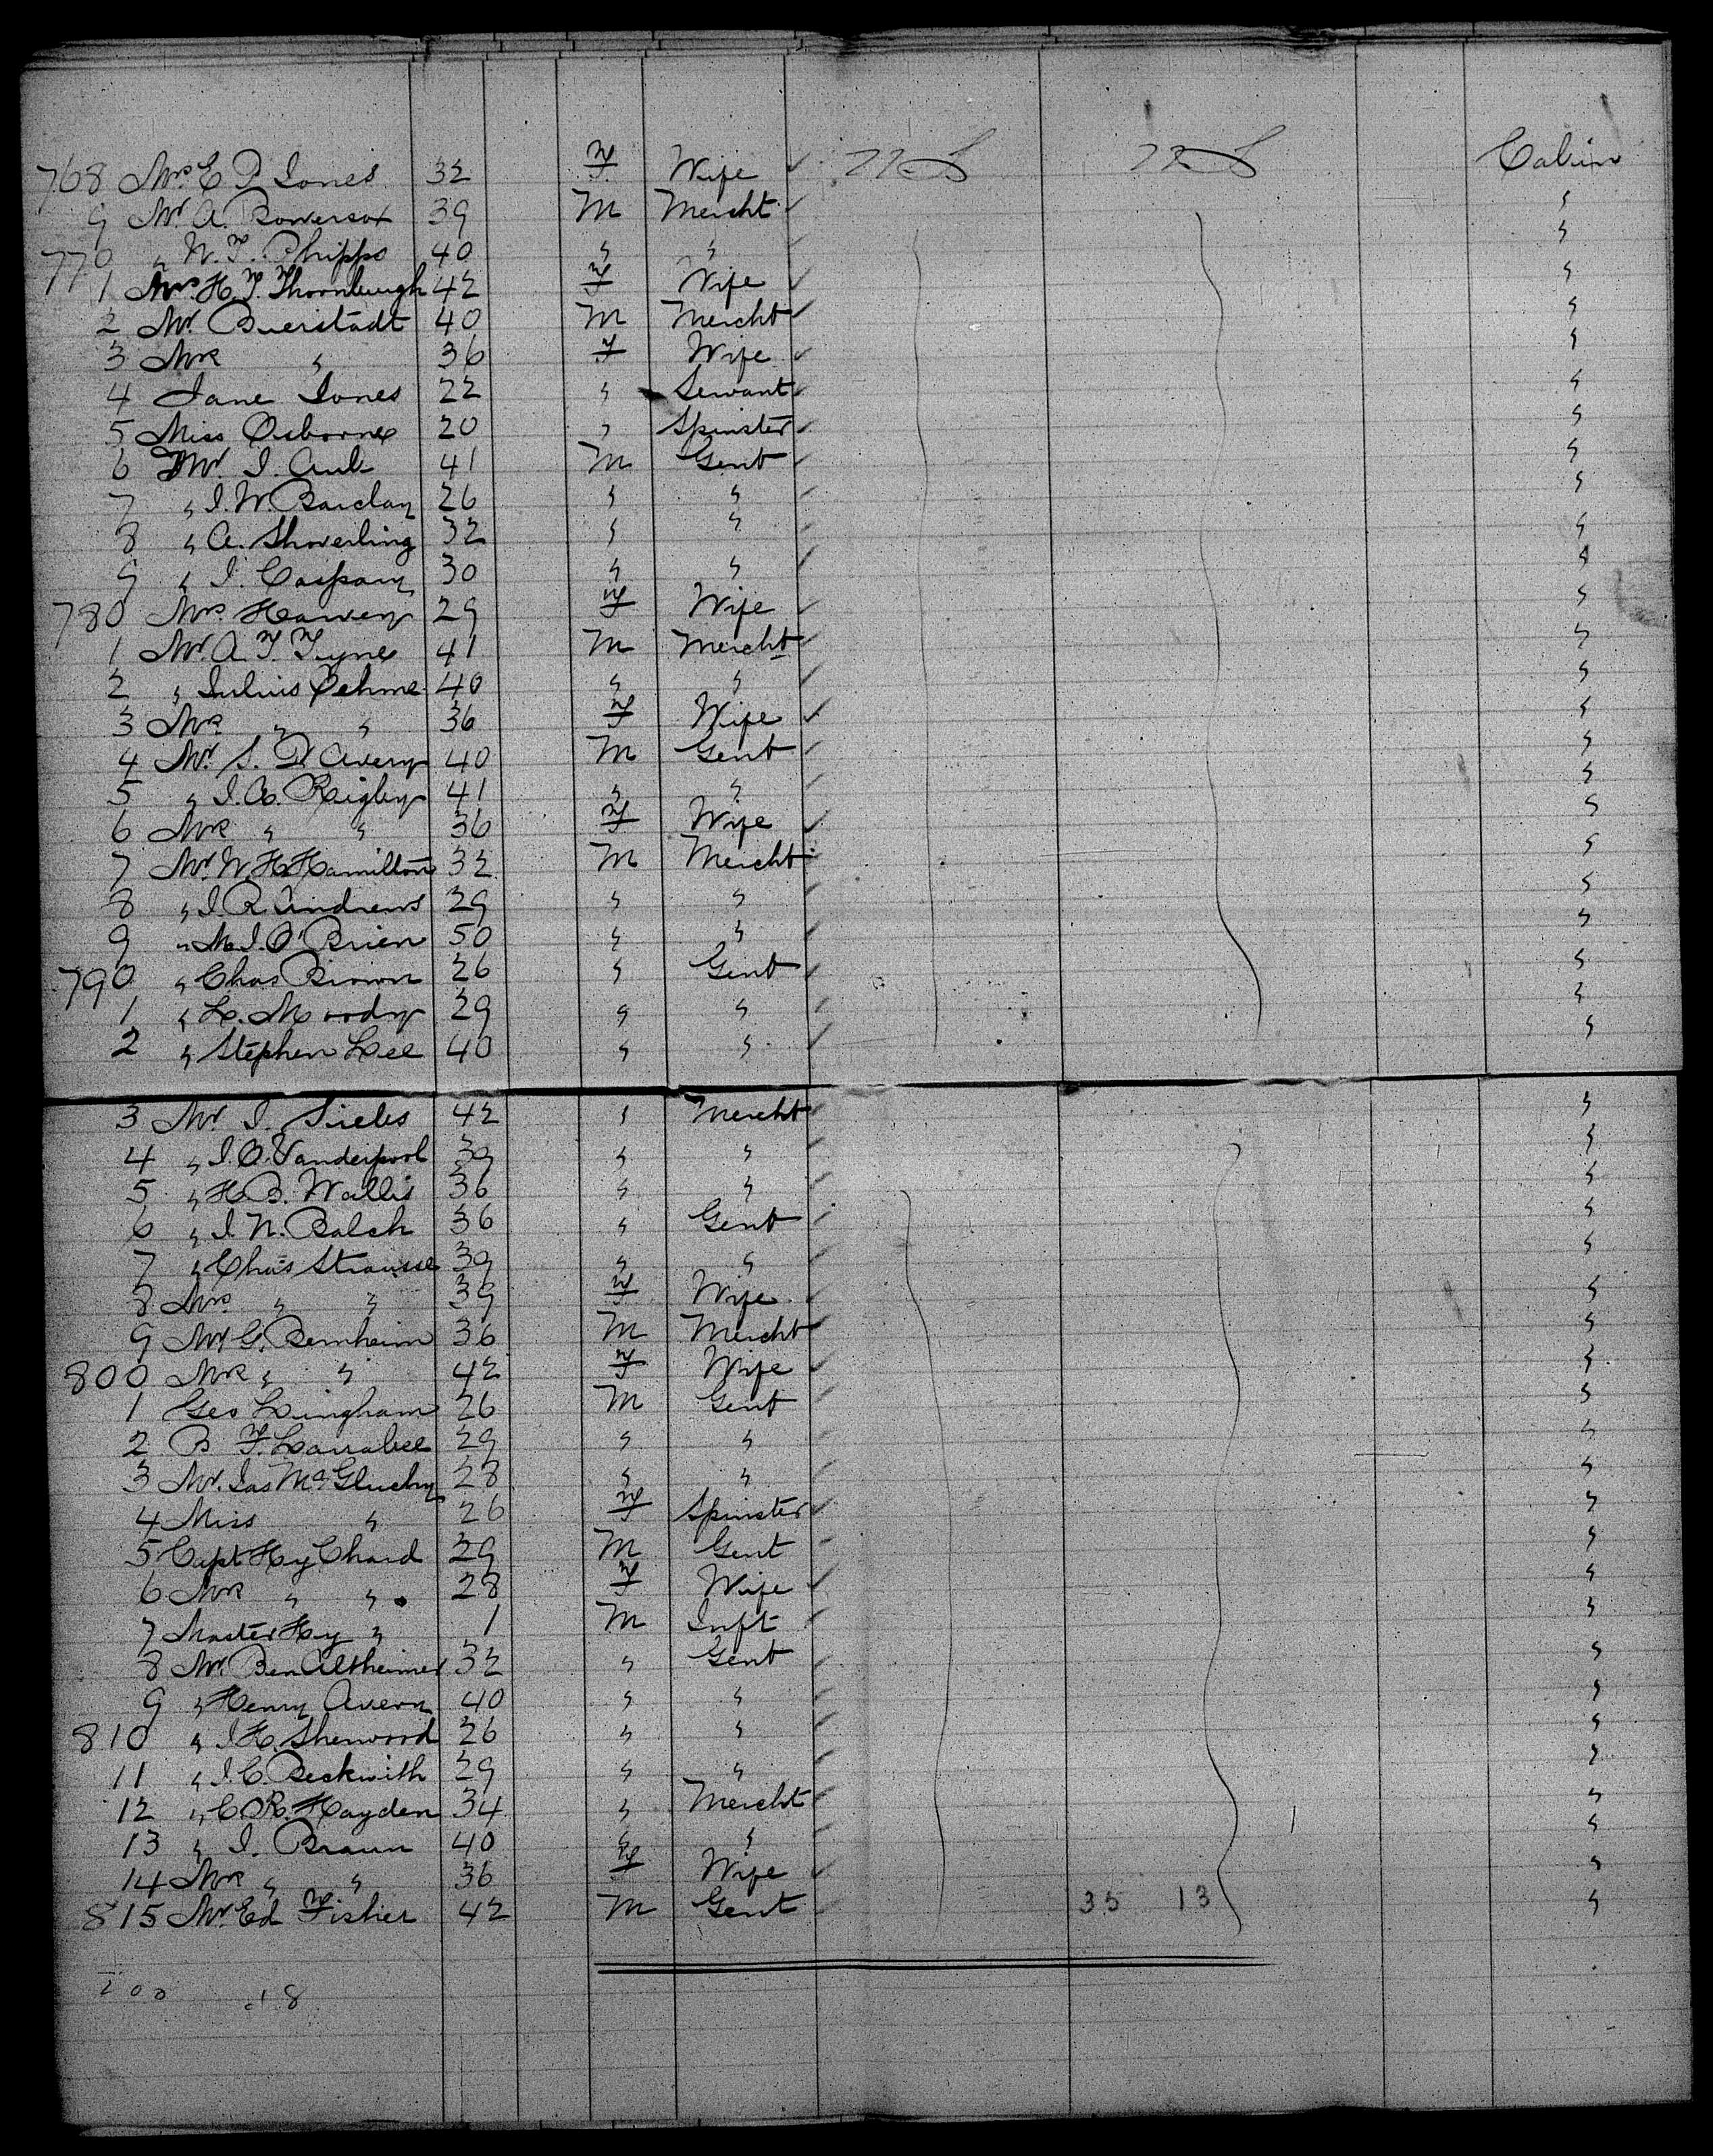 768 Mrs E P Jones 32 F Wife U S U S Cabin
9 Mr A. Bowersox 39 M Mercht "
770 " W. F. Phipps 40 " " "
1 Mrs H. F. Thornburgh 42 F Wife "
2 Mr Buerstadt 40 M Mercht "
3 Mrs " 36 F Wife "
4 Jane Jones 22 " Servant "
5 Miss Osborne 20 " Spinster "
6 Mr J. Aub 41 M Gent "
7 " J. W. Barclay 26 " " "
8 " A. Shoverling 32 " " "
9 " J. Caspary 30 " " "
780 Mrs Harvey 29 F Wife "
1 Mr. A. F. Fyne 41 M Mercht "
2 " Julius Oehme 40 " " "
3 Mrs " " 36 F Wife "
4 Mr. S. D Avery 40 M Gent "
5 " J. A. Rigby 41 " " "
6 Mrs " " 36 F Wife "
7 Mr. W. H. Hamilton 32 M Mercht "
8 " J. R. Andrews 29 " " "
9 " M. J. O'Brien 50 " " "
790 " Chas Brown 26 " Gent "
1 " L. Moody 29 " " "
2 " Stephen Lee 40 " " "
3 Mr J. Siebs 42 " Mercht "
4 " J. A. Vanderpool 39 " " "
5 " H. B. Wallis 36 " " "
6 " J. N. Balch 36 " Gent "
7 " Chas Strausse 39 " " "
8 Mrs " " 39 F Wife "
9 Mr G. Bernheim 36 M Mercht "
800 Mrs " " 42 F Wife "
1 Geo Lingham 26 M Gent "
2 B F. Larrabee 29 " " "
3 Mr. Jas McGluchy 28 " " "
4 Miss " 26 F Spinster "
5 Capt Hy Chard 29 M Gent "
6 Mrs " " 28 F Wife "
7 Master Hy " 1 M Inft "
8 Mr. Ben Altheimer 32 " Gent "
9 " Henry Avery 40 " " "
810 " J. H. Sherwood 26 " " "
11 " J. C. Beckwith 29 " " "
12 " C. R. Hayden 34 " Mercht "
13 " J. Braun 40 " " "
14 Mrs " " 36 F Wife "
815 Mr. Ed Fisher 42 M Gent 35 13 "
200 18